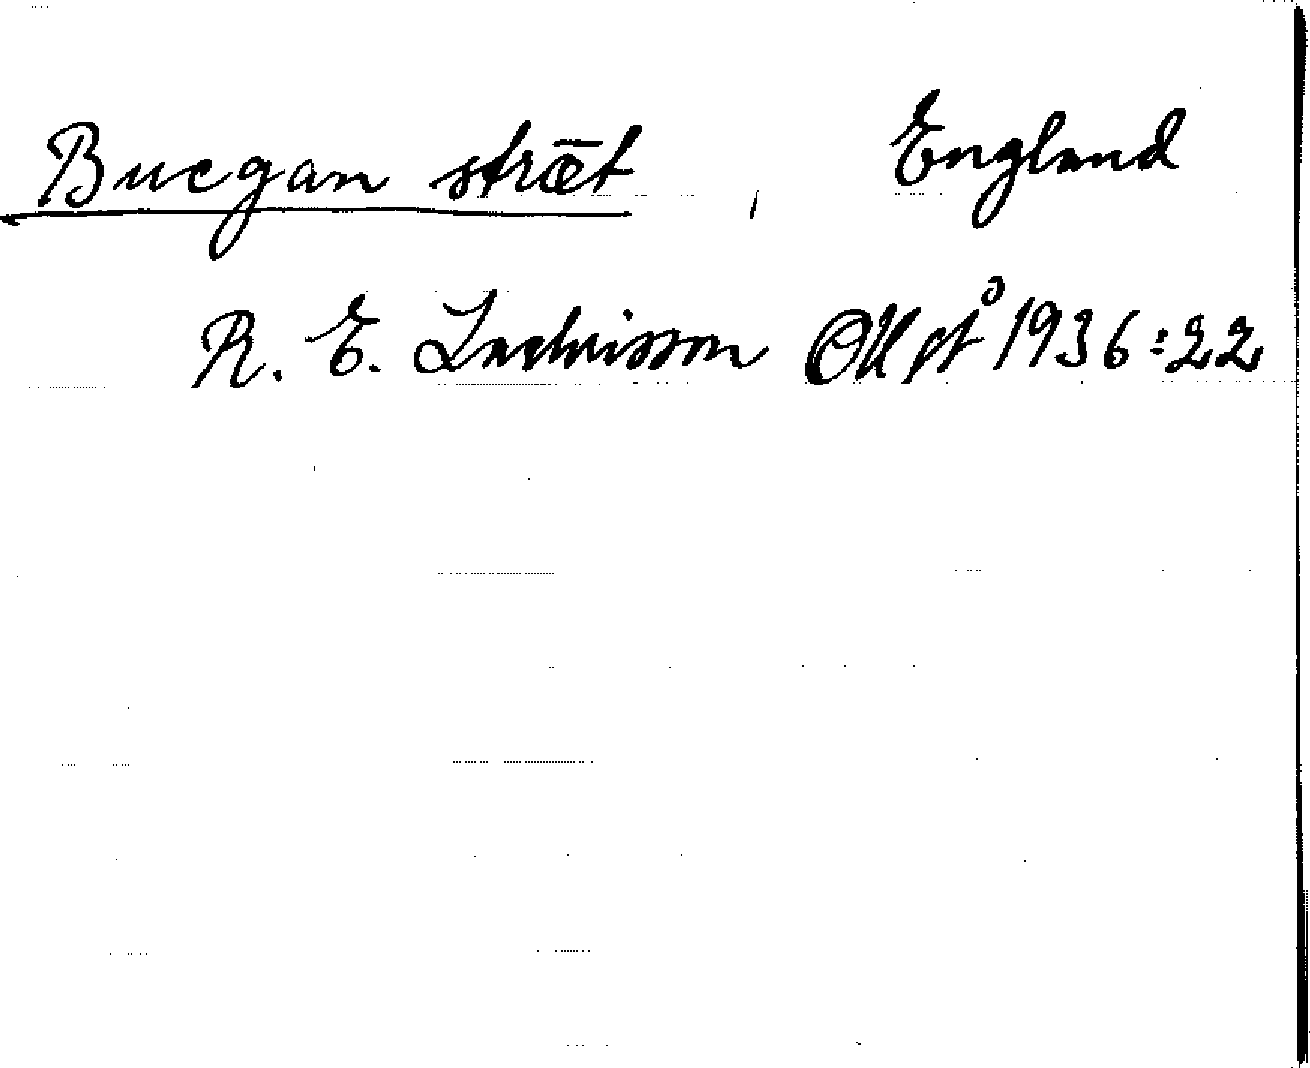 Bucgan strǣt , England
R. E. Zachrisson 1936:22